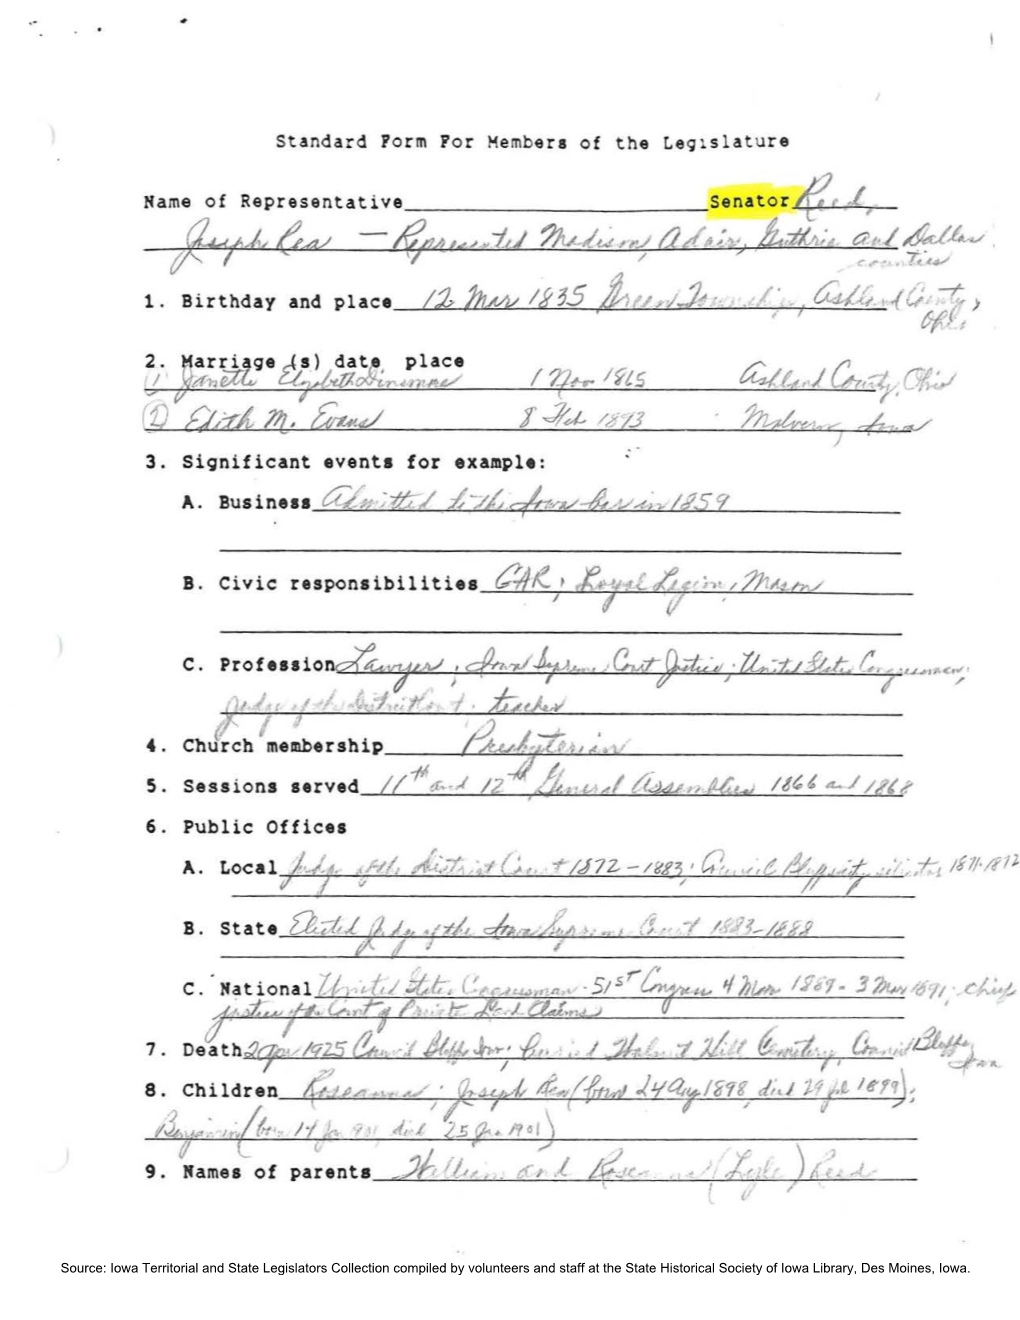 Standard Form For Members of the Legislature
Name of Representative Senator Reed,
Joseph Rea — Represented Madison, Adair, Guthrie and Dallas
counties
1. Birthday and place 12 Mar 1835 Green Township, Ashland County,
Ohio
2. Marriage (s) date place
(1) Janette Elizabeth 1 Nov 1865 Ashland County, Ohio
(2) Edith M. Evans 8 Feb 1893 Malvern, Iowa
3. Significant events for example:
A. Business Admitted to the Iowa bar in 1859
B. Civic responsibilities GAR; Loyal Legion; Mason
C. Profession Lawyer; Iowa Supreme Court Justice; United States Congressman;
Judge of the District Court; teacher
4. Church membership Presbyterian
5. Sessions served 11th and 12th General Assemblies 1866 and 1868
6. Public Offices
A. Local Judge of the District Court 1872-1883; Council Bluffs city solicitor 1871-1872
B. State Elected Judge of the Iowa Supreme Court 1883-1888
C. National United States Congressman - 51st Congress 4 Mar 1889 - 3 Mar 1891; chief
justice of the Court of Private Land Claims
7. Death 2 Apr 1925 Council Bluffs, Iowa; buried Walnut Hill Cemetery, Council Bluffs,
Iowa
8. Children Roseanna; Joseph Rea (born 24 Aug 1898, died 29 Jul 1899);
Benjamin (born 14 Jan 1901, died 25 Jan 1901)
9. Names of parents William and Roseanna (Lyle) Reed
Source: Iowa Territorial and State Legislators Collection compiled by volunteers and staff at the State Historical Society of Iowa Library, Des Moines, Iowa.